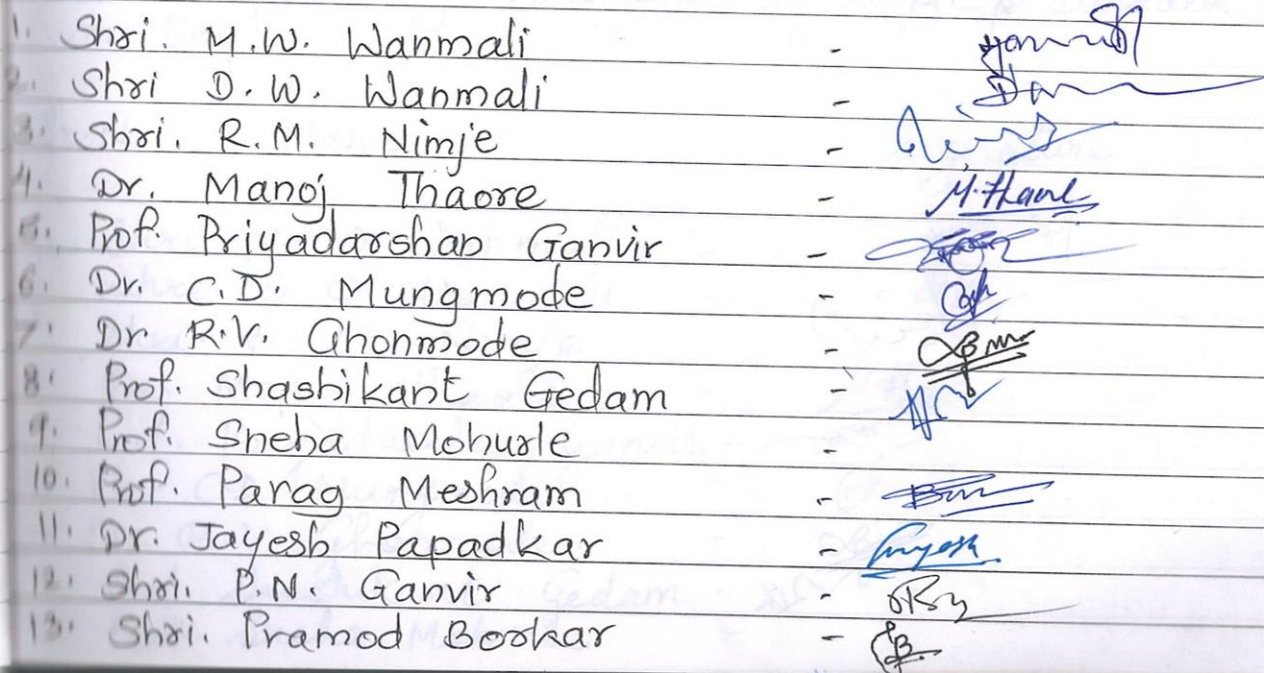 1. Shri. M.W. Wanmali -
2. Shri D.W. Wanmali -
3. Shri. R.M. Nimje -
4. Dr. Manoj Thaore - M.Thaore
5. Prof. Priyadarshan Ganvir -
6. Dr. C.D. Mungmode -
7. Dr R.V. Ghonmode -
8. Prof. Shashikant Gedam -
9. Prof. Sneha Mohurle -
10. Prof. Parag Meshram -
11. Dr. Jayesh Papadkar - Jayesh
12. Shri. P.N. Ganvir -
13. Shri. Pramod Borkar -